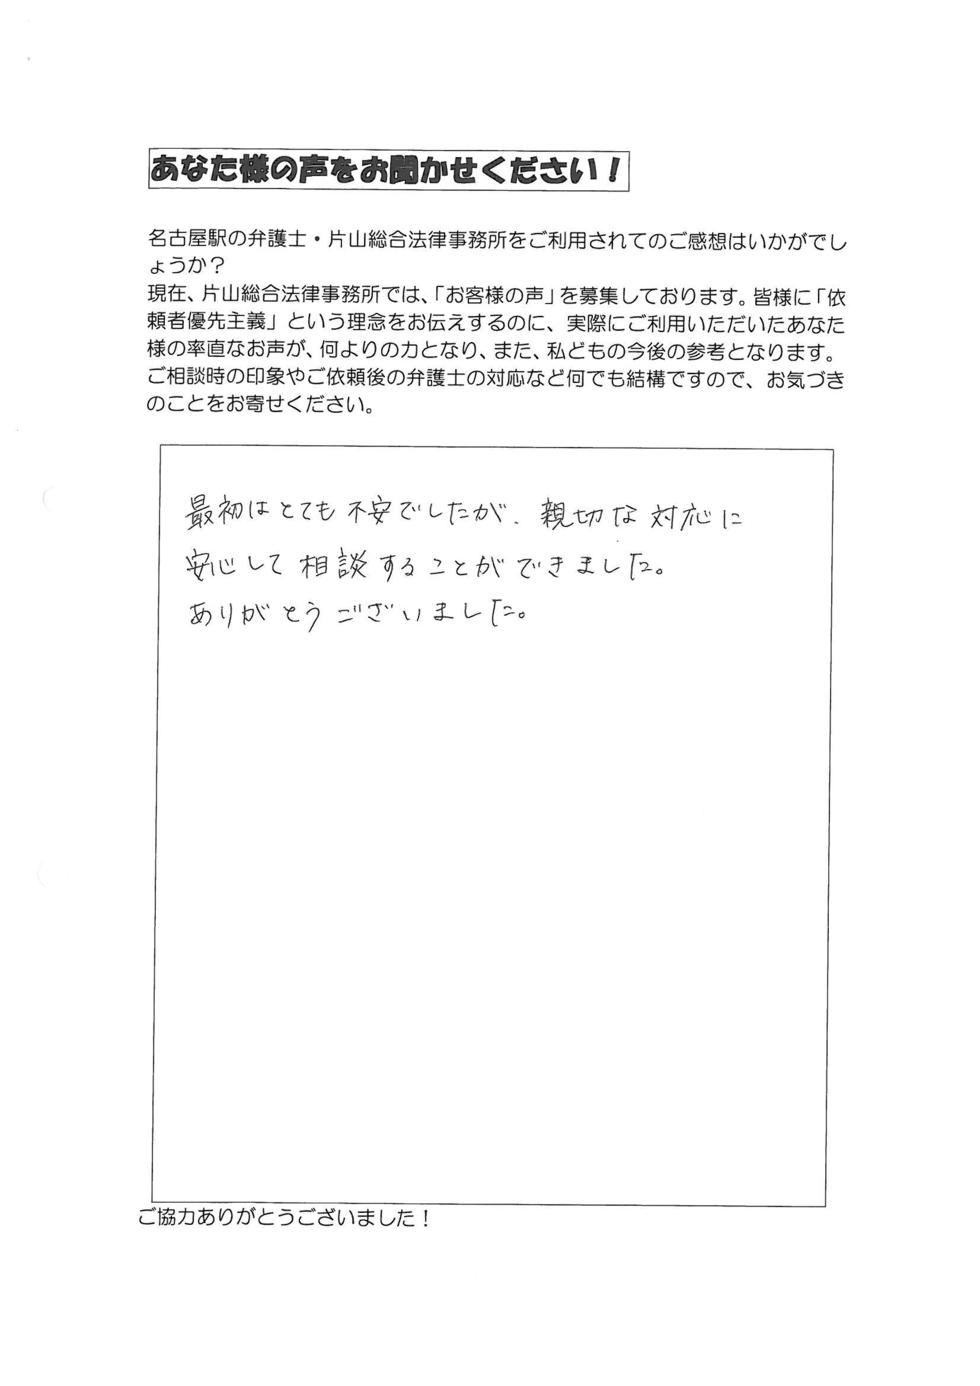 あなた様の声をお聞かせください！
名古屋駅の弁護士・片山総合法律事務所をご利用されてのご感想はいかがでし
ょうか？
現在、片山総合法律事務所では、「お客様の声」を募集しております。皆様に「依
頼者優先主義」という理念をお伝えするのに、実際にご利用いただいたあなた
様の率直なお声が、何よりの力となり、また、私どもの今後の参考となります。
ご相談時の印象やご依頼後の弁護士の対応など何でも結構ですので、お気づき
のことをお寄せください。
最初はとても不安でしたが、親切な対応に
安心して相談することができました。
ありがとうございました。
ご協力ありがとうございました！